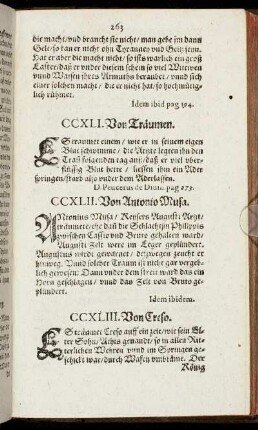 263
die macht/ vnd braucht sie nicht/ man gebe im dann
Gelt/ so kan er nicht ohn Tyranney vnd Geitz seyn.
Hat er aber die macht nicht/ so ists warlich ein groß
Laster/ daß er vnder diesem schein so viel Wittwen
vnnd Waisen jhres Armuths beraubet/ vnnd sich
einer solchen macht/ die er nicht hat/ so hochmütig-
lich rühmet.
Idem ibid pag 394.
CCXLI. Von Träumen.
ES traumet einem/ wie er in seinem eigen
Blut schwumme/ die Artzte legten jhn den
Traū folgenden tag auß/ daß er viel vber-
flüssig Blut hette/ liessen jhm ein Ader
springen/ starb also vnder dem Aderlassen.
D. Peucerus de Diuin. pag 273.
CCXLII. Von Antonio Musa.
ANtonius Musa/ Keysers Augusti Artzt/
träumete/ ehe daß die Schlacht in Philippis
zwischen Cassio vnd Bruto gehalten ward/
Augusti Zelt were im Leger geplündert.
Augustus wirdt gewarnet/ deßwegen zeucht er
hinweg. Vnnd solcher Traum ist nicht gar vergeb-
lich gewesen: Dann vnder dem streit ward das ein
Horn geschlagen/ vnnd das Zelt von Bruto ge-
plündert.
Idem ibidem.
CCXLIII. Von Creso.
ES träumet Creso auff ein zeit/ wie sein El-
ter Sohn/ Athis genandt/ so in alles Rit-
terlichen Wehren vnnd im Springen ge-
schickt war/ durch Wafen vmbkäme. Der
König